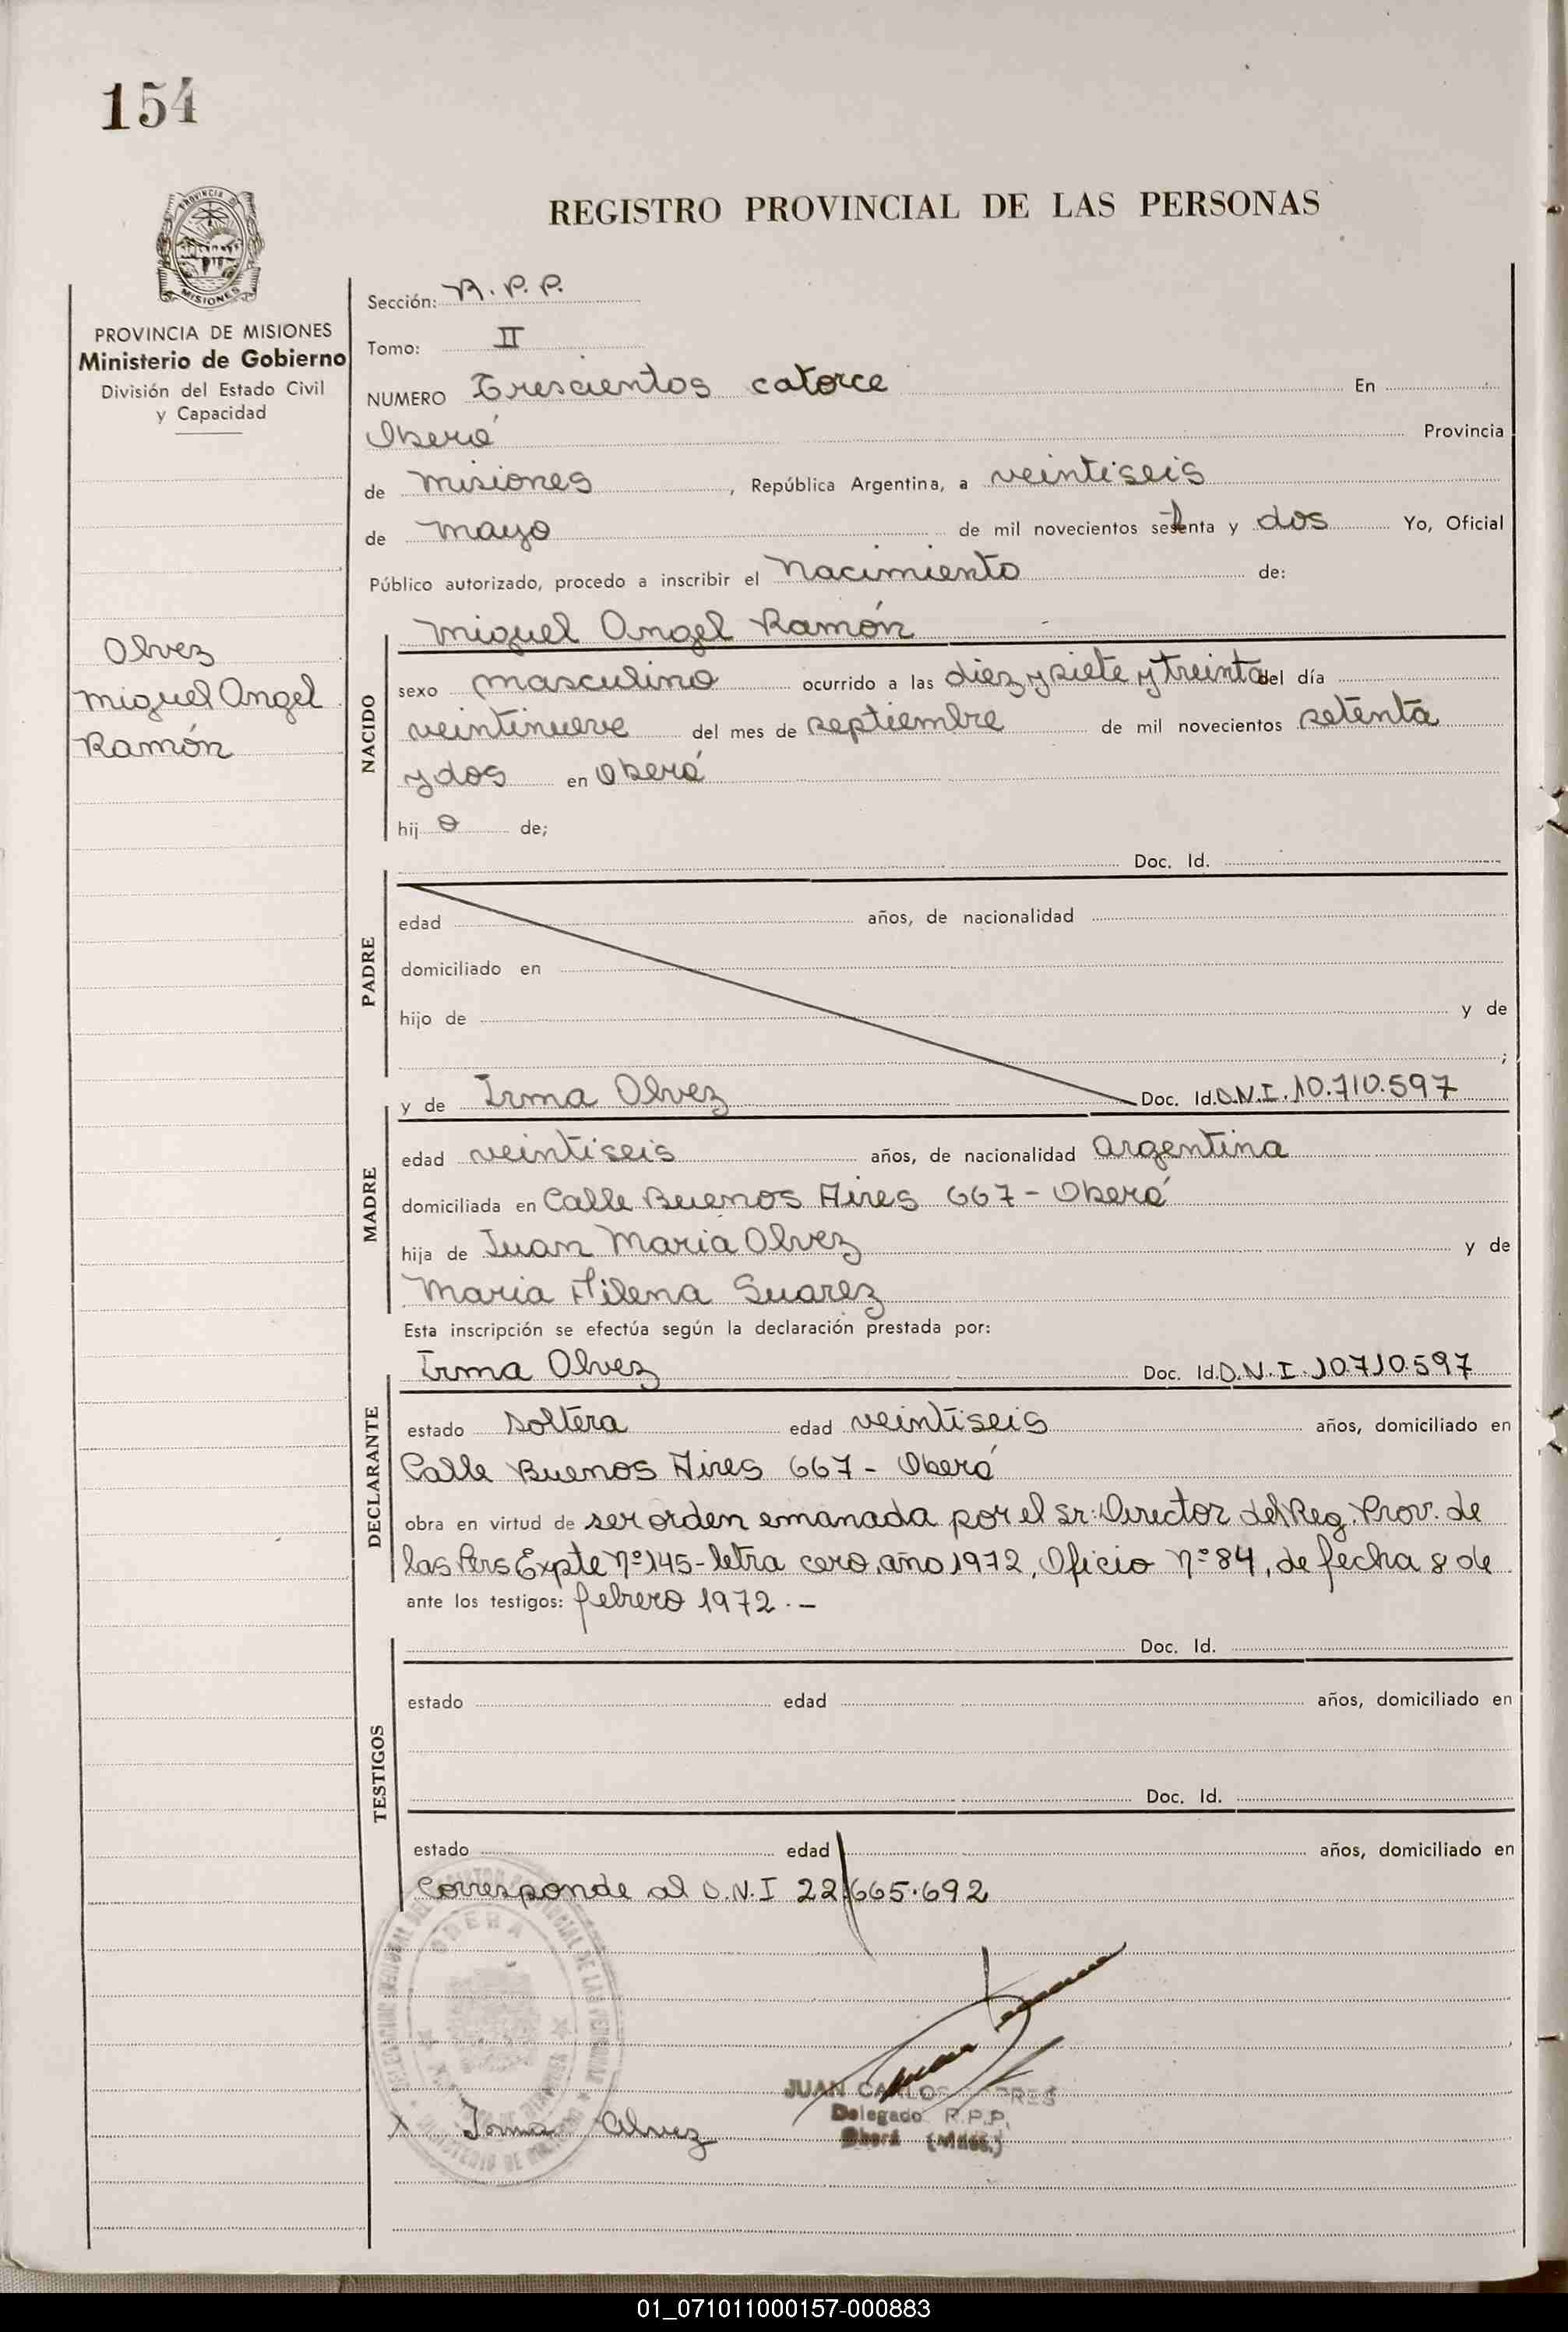 154
PROVINCIA DE
MISIONES
PROVINCIA DE MISIONES
Ministerio de Gobierno
División del Estado Civil
y Capacidad
Olvez
Miguel Angel
Ramón
REGISTRO PROVINCIAL DE LAS PERSONAS
Sección: R. P. P.
Tomo: II
NUMERO Trescientos catorce En
Oberá Provincia
de Misiones, República Argentina, a veintiseis
de Mayo de mil novecientos setenta y dos Yo, Oficial
Público autorizado, procedo a inscribir el Nacimiento de:
NACIDO
Miguel Angel Ramón
sexo masculino ocurrido a las diez y siete y treinta del día
veintinueve del mes de septiembre de mil novecientos setenta
y dos en Oberá
hij o de;
PADRE
Doc. Id.
edad años, de nacionalidad
domiciliado en
hijo de y de
;
MADRE
y de Irma Olvez Doc. Id. D.N.I. 10.710.597
edad veintiseis años, de nacionalidad Argentina
domiciliada en Calle Buenos Aires 667 - Oberá
hija de Juan Maria Olvez y de
Maria Filena Suarez
Esta inscripción se efectúa según la declaración prestada por:
DECLARANTE
Irma Olvez Doc. Id. D.N.I. 10.710.597
estado soltera edad veintiseis años, domiciliado en
Calle Buenos Aires 667 - Oberá
obra en virtud de ser orden emanada por el Sr: Director del Reg. Prov. de
las Pers Expte Nº 145 - letra cero, año 1972, Oficio Nº 84, de fecha 8 de
ante los testigos: febrero 1972 . -
TESTIGOS
Doc. Id.
estado edad años, domiciliado en
Doc. Id.
estado edad años, domiciliado en
Corresponde al D.N.I 22.665.692
OBERA
JUAN CARLOS
Delegado R.P.P.
Oberá (Mnes.)
x Irma Olvez
01_071011000157-000883